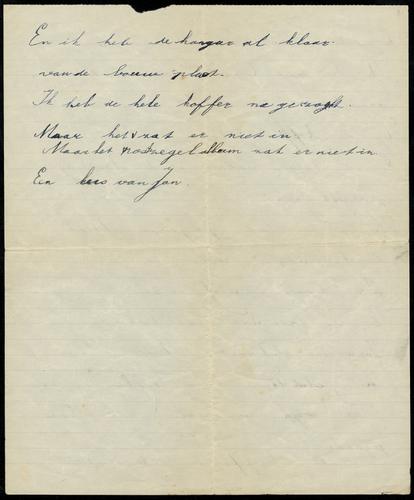 En ik heb de hangar al klaar.
van de bouw plaat.
Ik heb de hele koffer na gezogt.
Maar het zat er niet in
Maar het postzegelalbum zat er niet in
Een kus van Jan.